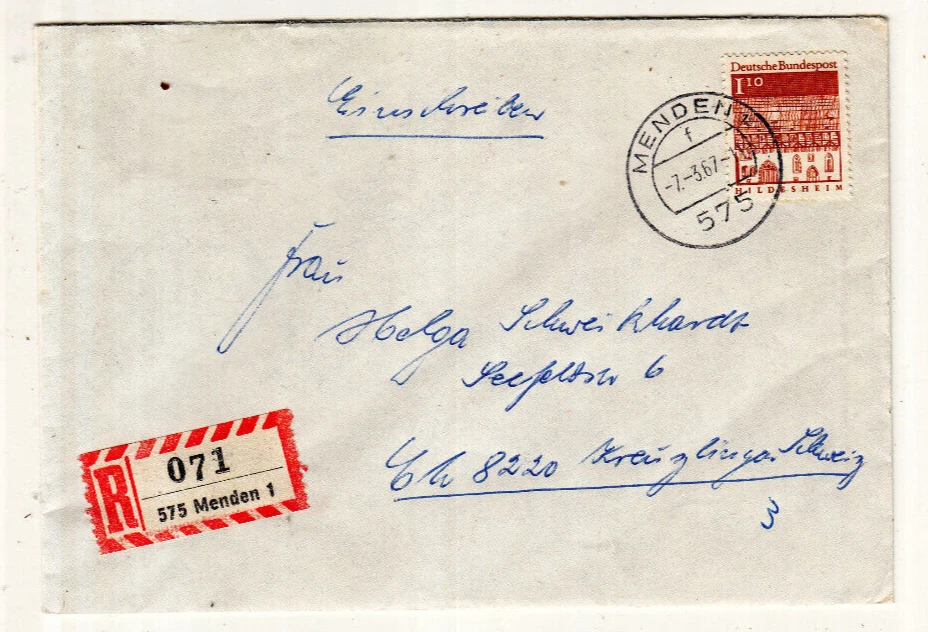 Einschreiben
Deutsche Bundespost
1 10
HILDESHEIM
MENDEN
f
-7.-3.67-
575
Frau
Helga Schweikhardt
Seefeldstr 6
Ch 8220 Kreuzlingen Schweiz
3
R
071
575 Menden 1